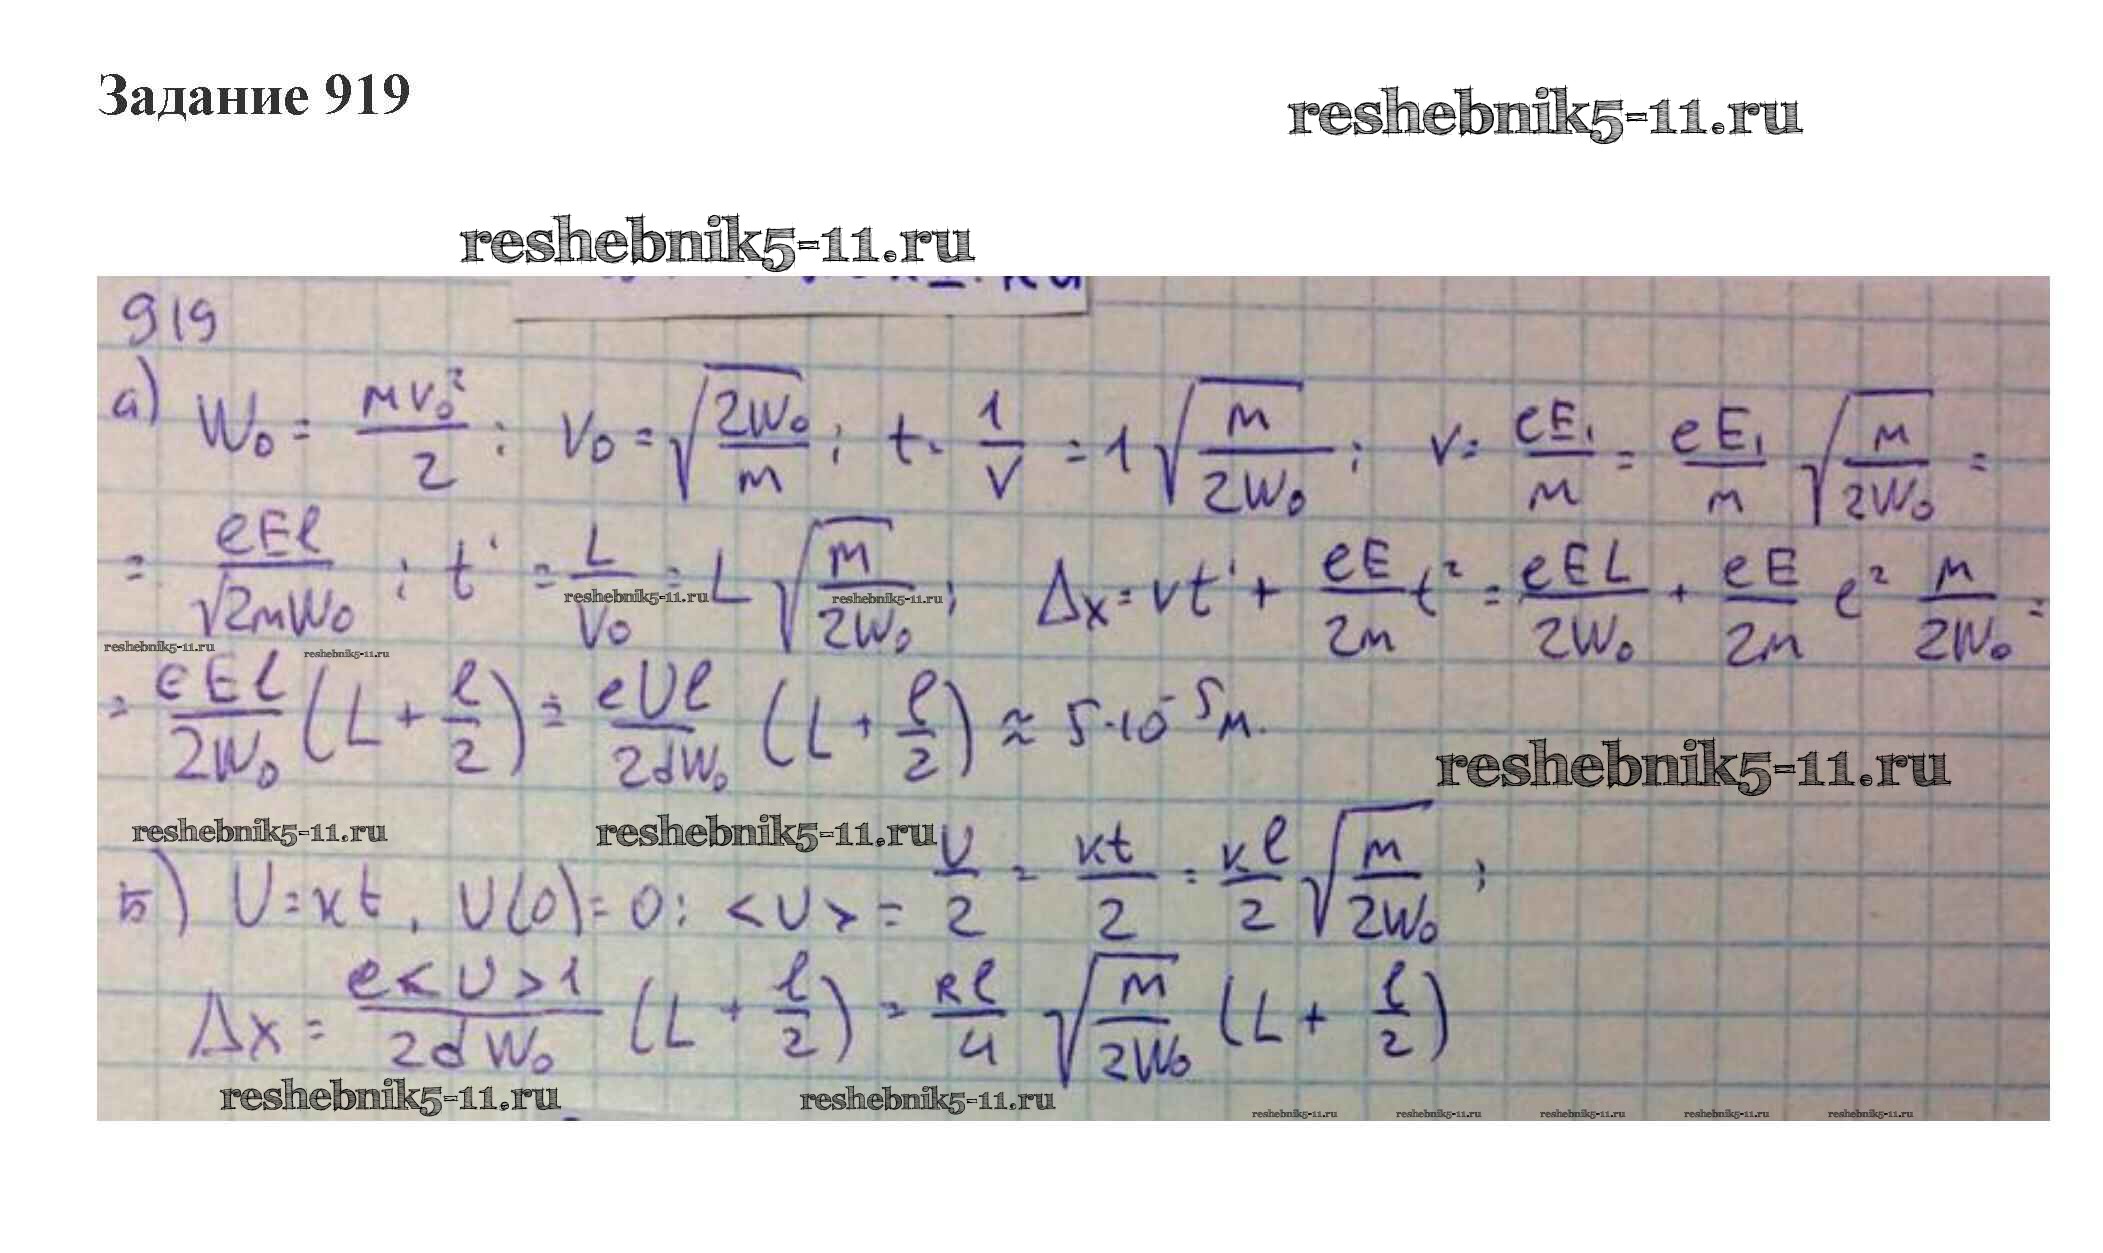 Задание 919
reshebnik5-11.ru
reshebnik5-11.ru
919
а) W₀ = mv₀²/2 ; v₀ = √(2W₀/m) ; t = 1/v = 1√(m/2W₀) ; v = eE₁/m = eE₁/m √(m/2W₀) =
= eEl/√2mW₀ ; t' = L/v₀ = L√(m/2W₀) ; Δx = vt' + eE/2m t² = eEL/2W₀ + eE/2m e² m/2W₀ =
reshebnik5-11.ru reshebnik5-11.ru
reshebnik5-11.ru reshebnik5-11.ru
= eEl/2W₀ (L + l/2) = eUl/2dW₀ (L + l/2) ≈ 5·10⁻⁵ м.
reshebnik5-11.ru
reshebnik5-11.ru reshebnik5-11.ru
Б) U = кt, U(0) = 0 : <U> = U/2 = кt/2 = кl/2 √(m/2W₀) ;
Δx = e<U>1/2dW₀ (L + l/2) = кl/4 √(m/2W₀) (L + l/2)
reshebnik5-11.ru reshebnik5-11.ru
reshebnik5-11.ru reshebnik5-11.ru reshebnik5-11.ru reshebnik5-11.ru reshebnik5-11.ru